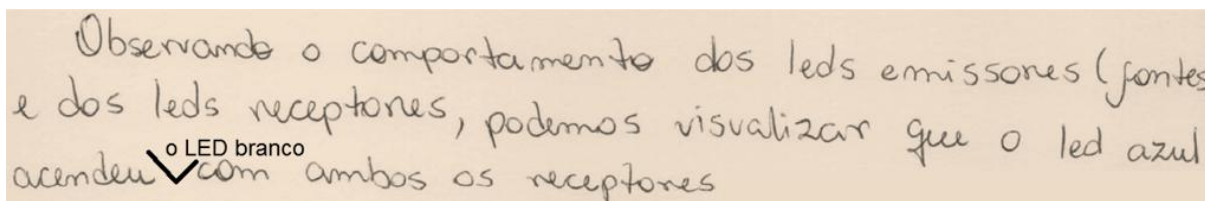 Observando o comportamento dos leds emissores (fontes
e dos leds receptores, podemos visualizar que o led azul
acendeu o LED branco com ambos os receptores